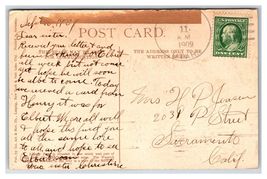 Apr
Dear sister.
Received your letter & and
been looking for Elbert
all week but not come
yet hope he will soon
be able to come. Today
we received a card from
Henry it was for
Elbert. We are all well
& hope this find you
all the same with
to all, and hope to see
Elbert soon
Your sister Christine
POST CARD.
THE ADDRESS ONLY TO BE
11-
A M
1909
Mrs H P Jensen
2031 P Street
Sacramento
Calif.